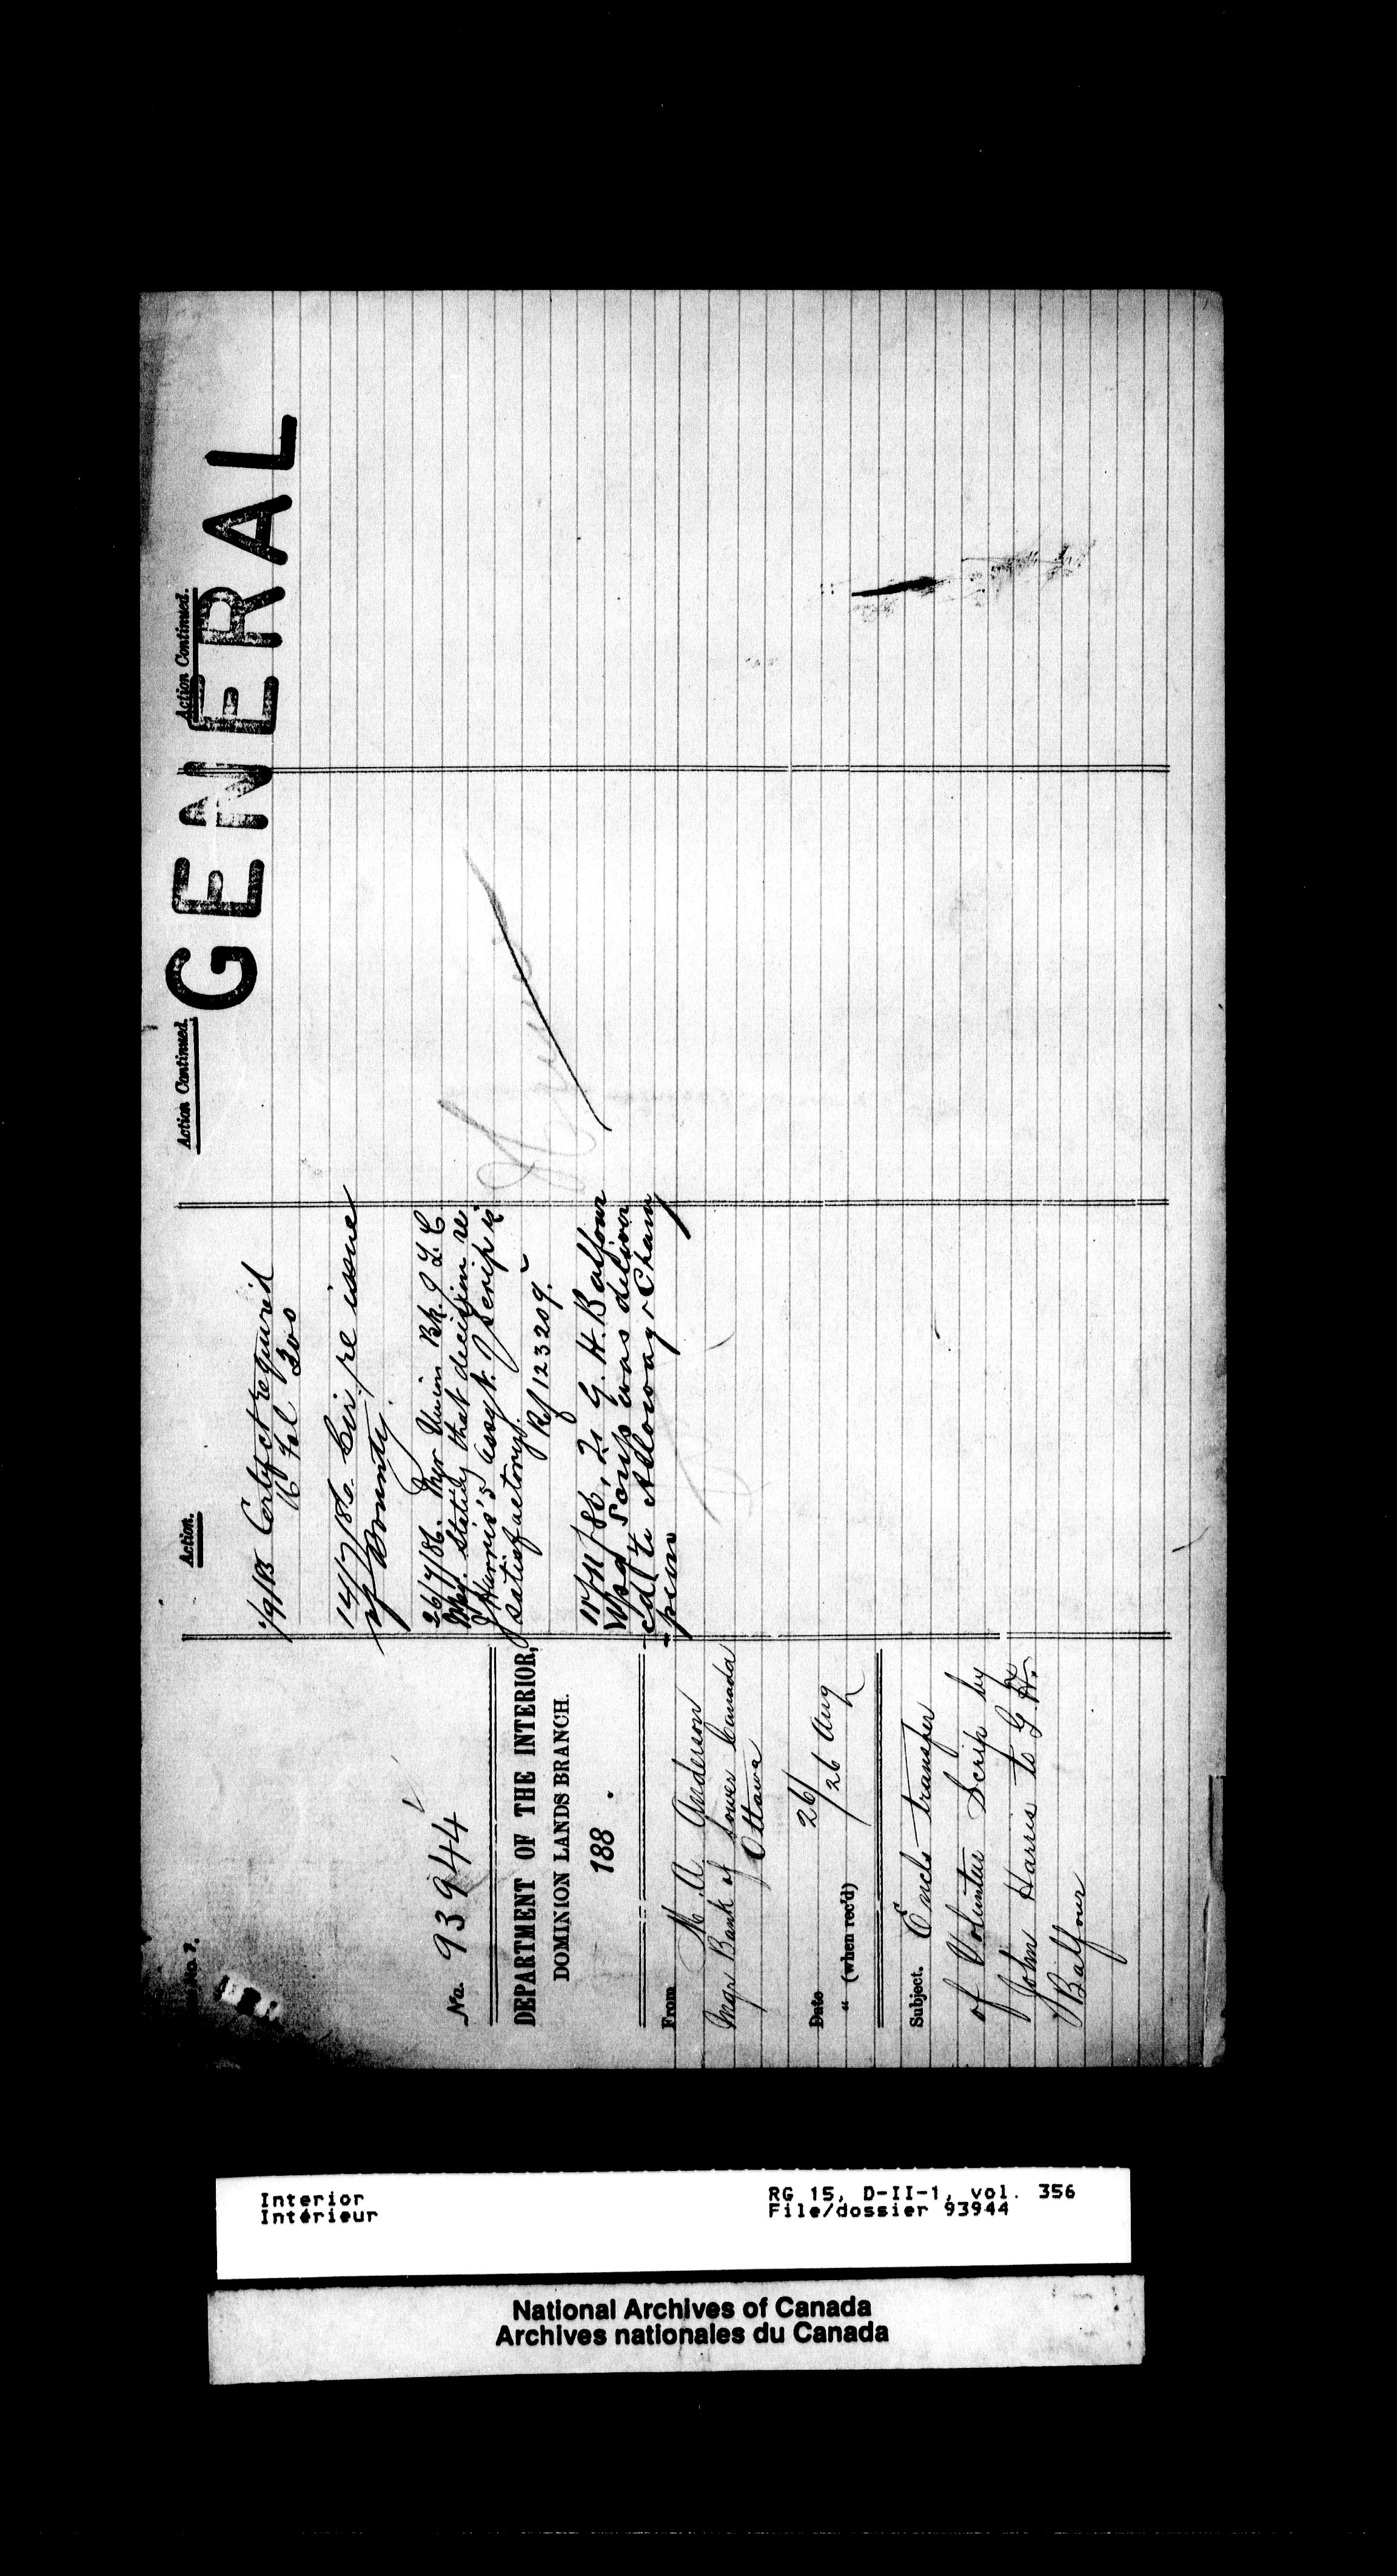 No. 7.
No. 93944
DEPARTMENT OF THE INTERIOR,
DOMINION LANDS BRANCH.
188 .
From M. A. Anderson
Mgr Bank of Lower Canada
Ottawa
Date 26/
" (when rec'd) 26 Aug
Subject. Encls transfer
of Volunteer Scrip by
John Harris to G. H.
Balfour
Action.
1/9/85 Certfct required
16 Fol 300
14/7/86 Cir. re issue
of Bounty.
26/7/86. Mgr Union Bk. of L. C
Wpg. Stating that decision re
J Harris's assgt. of Scrip is
satisfactory.
Rf 123209.
11/86. To G. H. Balfour
Wpg Scrip was deliver
ed to Alloway & Cham
pion
Action Continued.
Action Continued.
GENERAL
Interior
Intérieur
RG 15, D-II-1, vol. 356
File/dossier 93944
National Archives of Canada
Archives nationales du Canada